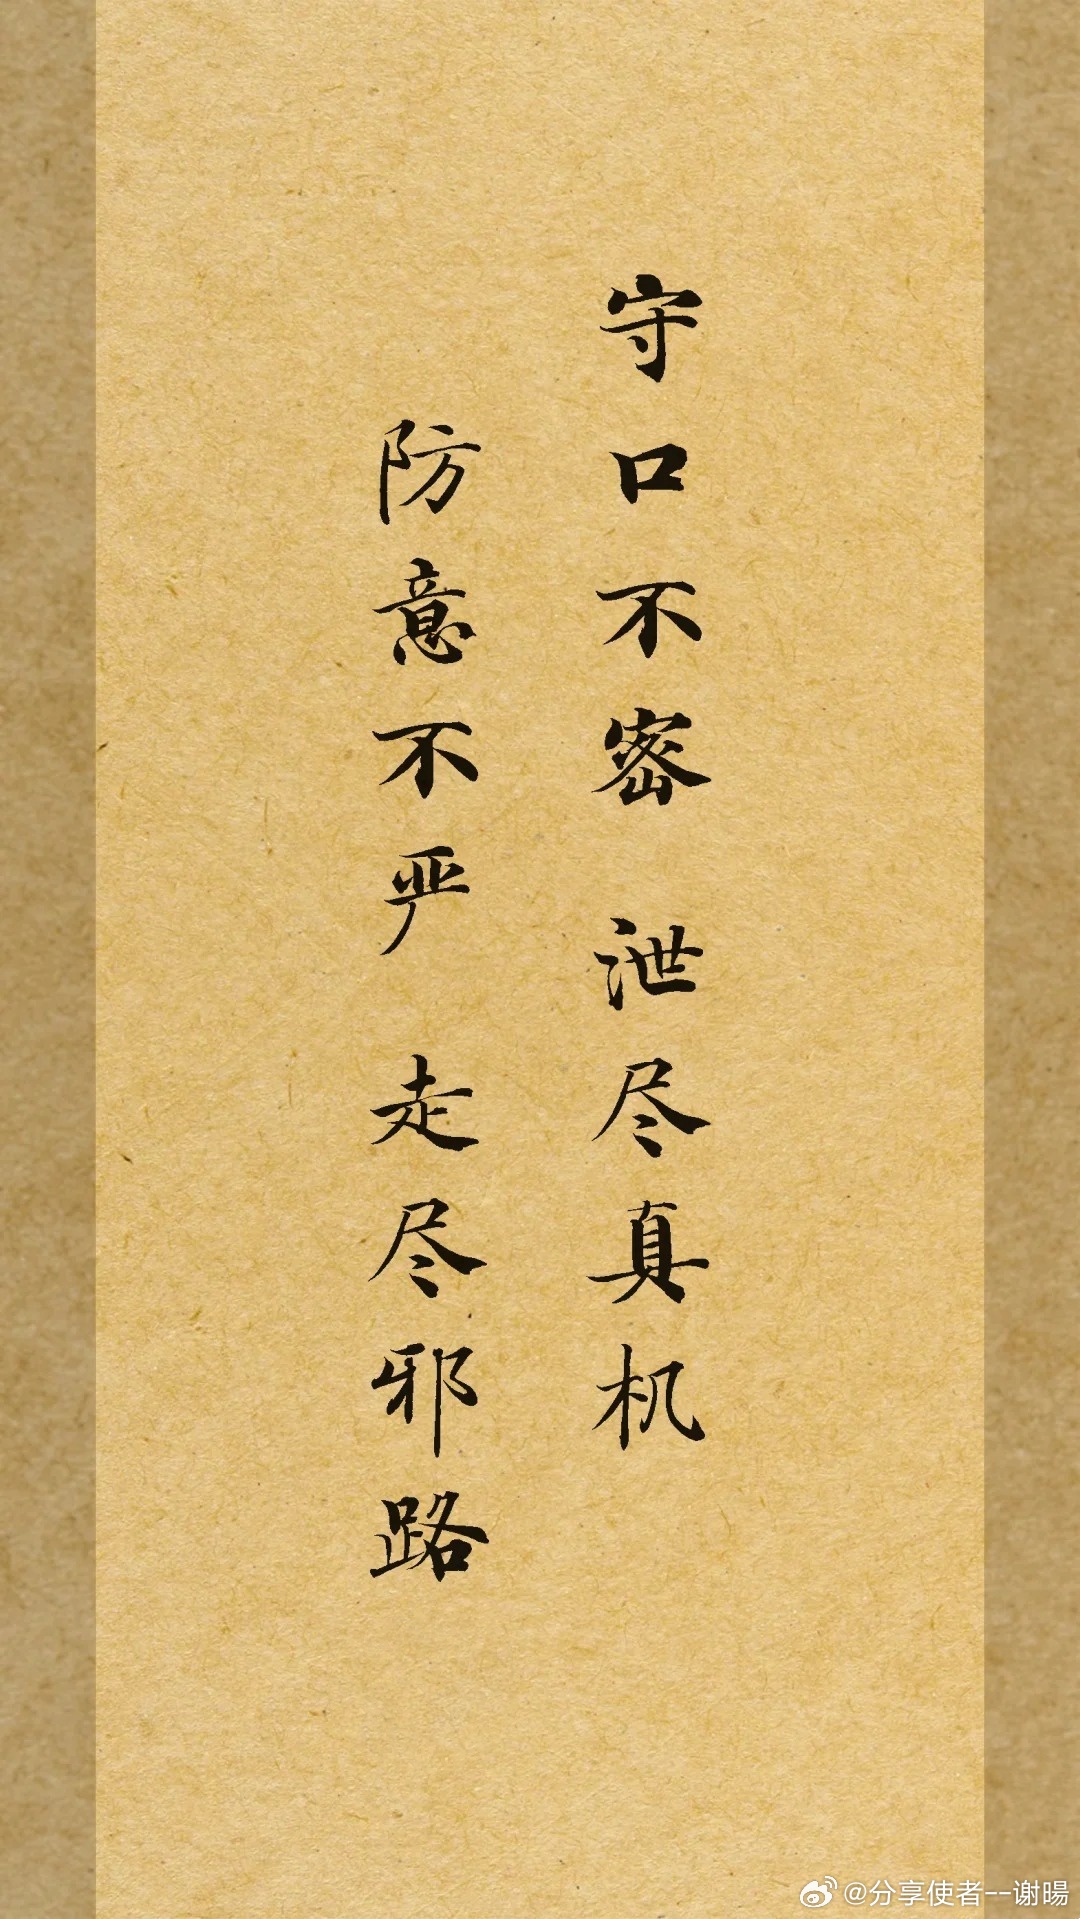 守口不密 泄尽真机
防意不严 走尽邪路
@分享使者--谢暘